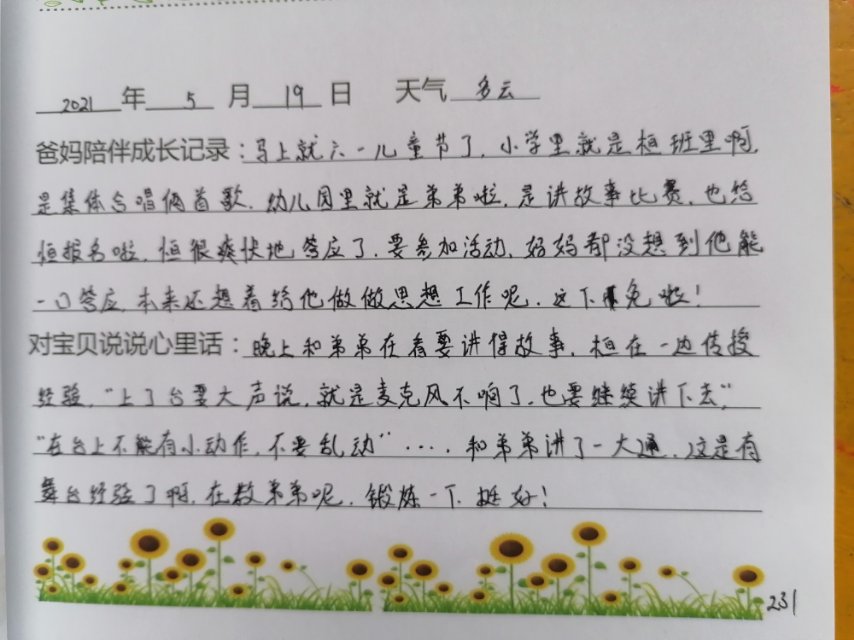 2021 年 5 月 19 日 天气 多云
爸妈陪伴成长记录：马上就六一儿童节了，小学里就是桓班里啊，
是集体合唱俩首歌，幼儿园里就是弟弟啦，是讲故事比赛，也给
恒报名啦，恒很爽快地答应了，要参加活动，妈妈都没想到他能
一口答应，本来还想着给他做做思想工作呢，这下免啦！
对宝贝说说心里话：晚上和弟弟在看要讲得故事，桓在一边传授
经验，“上了台要大声说，就是麦克风不响了，也要继续讲下去”，
“在台上不能有小动作，不要乱动”……，和弟弟讲了一大通，这是有
舞台经验了啊，在教弟弟呢，锻炼一下 挺好！
231